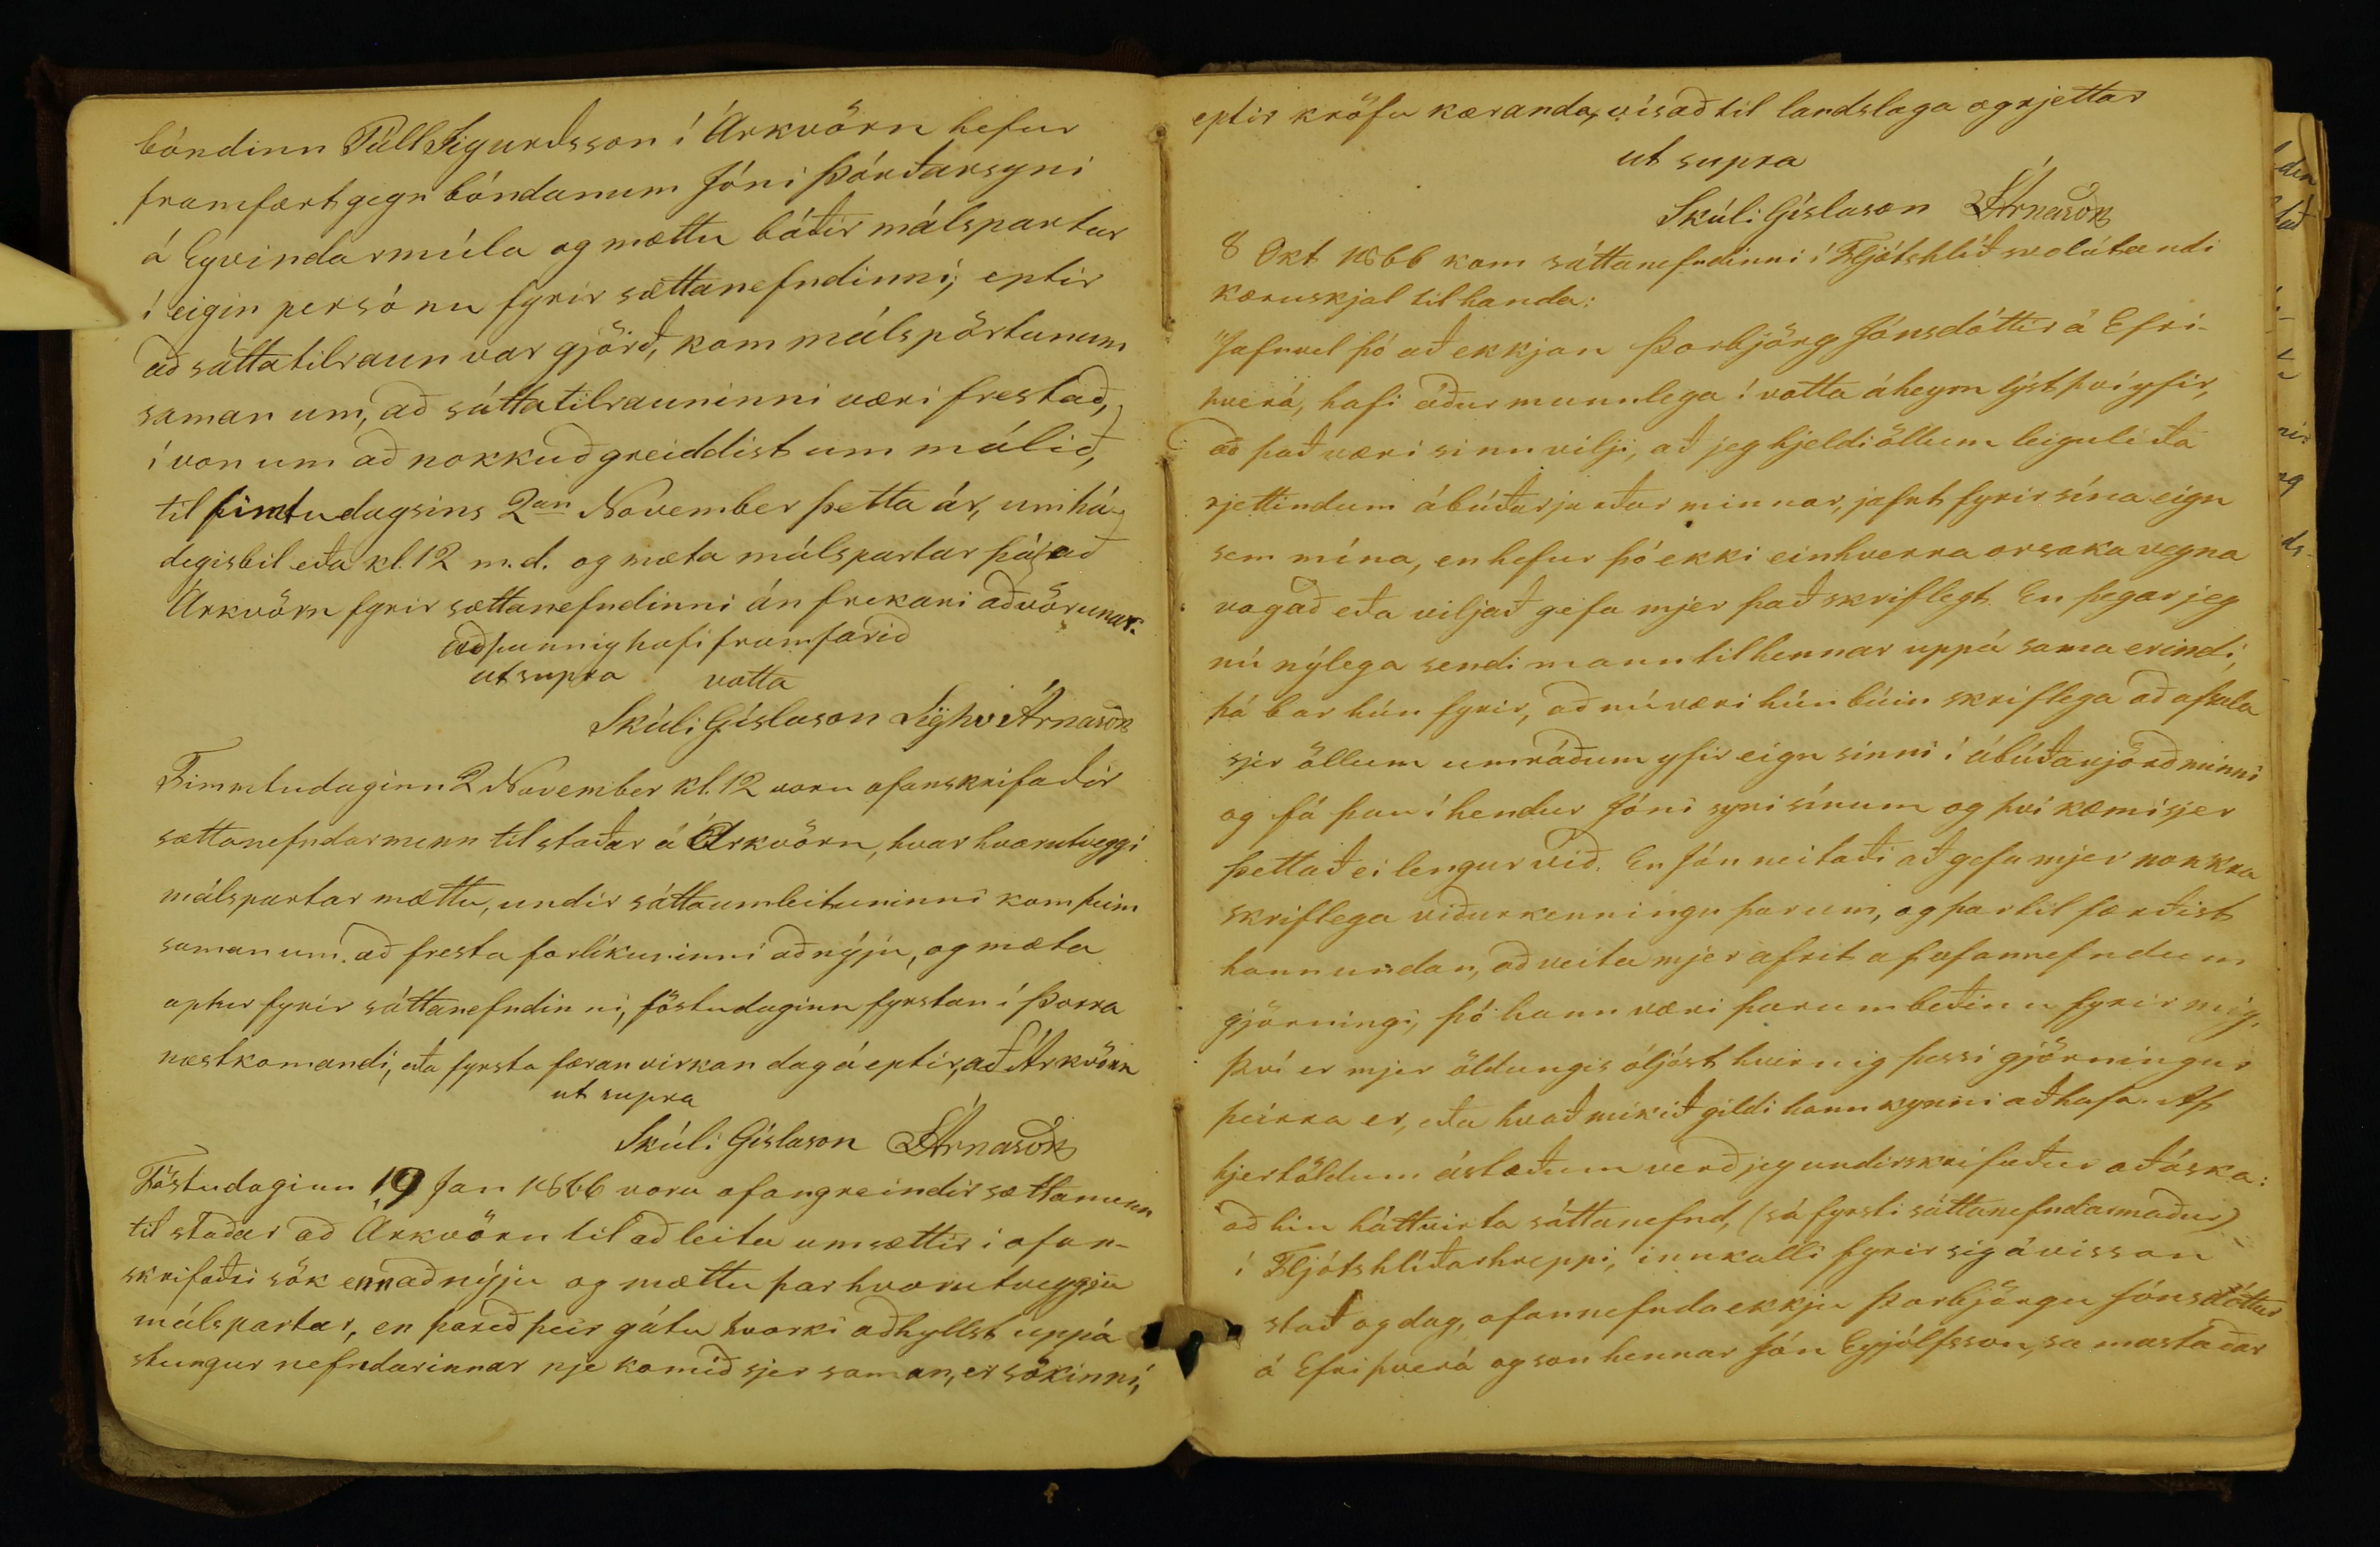 bóndinn Páll Sigurdsson í Árkvörn hefur
framfært gegn bóndanum Jóni Þórðarsyni
á Eyvindarmúla og mættu báðir málspartar
í eigin persónu fyrir sættanefndinni; eptir
að sáttatilraun var gjörð, kom málspörtunum
saman um, að sáttatilrauninni væri frestað,
í von um að nokkuð greiddist um málið,
til fimtudagsins 2an Nóvember þetta ár, um há-
degisbil eða kl. 12 m.d. og mæta málspartar þá að
Árkvörn fyrir sættanefndinni án frekari aðvörunar.
að þannig hafi framfarið
ut supra votta
Skúli Gíslason Sighv Árnason
Fimmtudaginn 2 November kl. 12 voru ofanskrifaðir
sættanefndarmenn til staðar á Árkvörn, hvar hvorutveggi
málspartar mættu, undir sáttaumleituninni kom þeim
saman um að fresta forlíkuninni að nýju, og mæta
aptur fyrir sáttanefndinni, föstudaginn fyrstan í Þorra
næstkomandi, eða fyrsta færan virkan dag á eptir, að Árkvörn
ut supra
Skúli Gíslason SÁrnason
Föstudaginn 19 Jan 1866 voru ofangreindir sættamenn
til staðar að Árkvörn til að leita um sættir í ofan-
skrifaðri sök enn að nýju og mættu þar hvorutveggju
málspartar, en þareð þeir gátu hvorki aðhyllst uppá
stungur nefndarinnar nje komið sjer saman, er sökinni,
eptir kröfu kæranda, vísað til landslaga og rjettar
ut supra
Skúli Gíslason SÁrnason
8 Okt 1866 kom sáttanefndinni í Fljótshlíð svolátandi
kæruskjal til handa:
"Jafnvel þó að ekkjan Þorbjörg Jónsdóttir á Efri-
þverá, hafi áður munnlega í votta áheyrn lýst því yfir,
að það væri sinn vilji, að jeg hjeldi öllum leiguliða
rjettindum ábúðarjarðar minnar, jafnt fyrir sína eign
sem mína, en hefur þó ekki einhverra orsaka vegna
vogað eða viljað gefa mjer það skriflegt. En þegar jeg
nú nýlega sendi mann til hennar uppá sama erindi,
þá bar hún fyrir, að nú væri hún búin skriflega að afsala
sjer öllum umráðum yfir eign sinni í ábúðarjörð minni
og fá þau í hendur Jóni syni sínum og því kæmi sjer
þettað ei lengur við. En Jón neitaði að gefa mjer nokkra
skriflega viðurkenningu þarum, og þartil færðist
hann undan, að veita mjer afrit af ofannefndum
gjörningi, þó hann væri þarum beðinn fyrir mig.
Því er mjer öldungis óljóst hvernig þessi gjörningur
þeirra er, eða hvað mikið gildi hann kynni að hafa. Af
hjertöldum ástæðum verð jeg undirskrifaður að óska:
að hin háttvirta sáttanefnd, (sá fyrsti sáttanefndarmaður)
í Fljótshlíðarhreppi, innkalli fyrir sig á vissan
stað og dag, ofannefnda ekkju Þorbjörgu Jónsdóttur
á Efriþverá og son hennar Jón Eyjólfsson, samastaðar